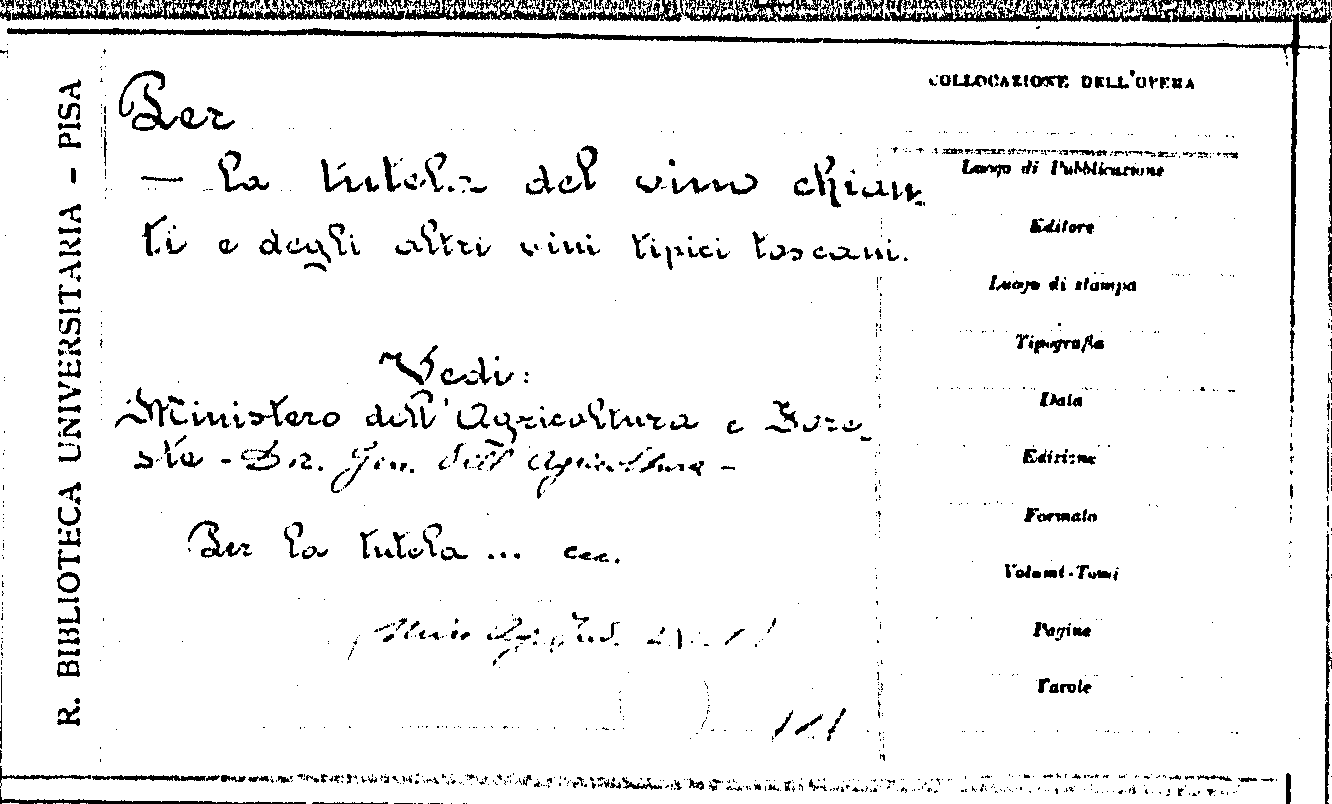 R. BIBLIOTECA UNIVERSITARIA - PISA
Per
— la tutela del vino chian-
ti e degli altri vini tipici toscani.
Vedi:
Ministero dell'Agricoltura e Fore-
ste - Dir. Gen. dell'Agricoltura -
Per la tutela ... ecc.
COLLOCAZIONE DELL'OPERA
Luogo di Pubblicazione
Editore
Luogo di stampa
Tipografia
Data
Edizione
Formato
Volumi-Tomi
Pagine
Tavole